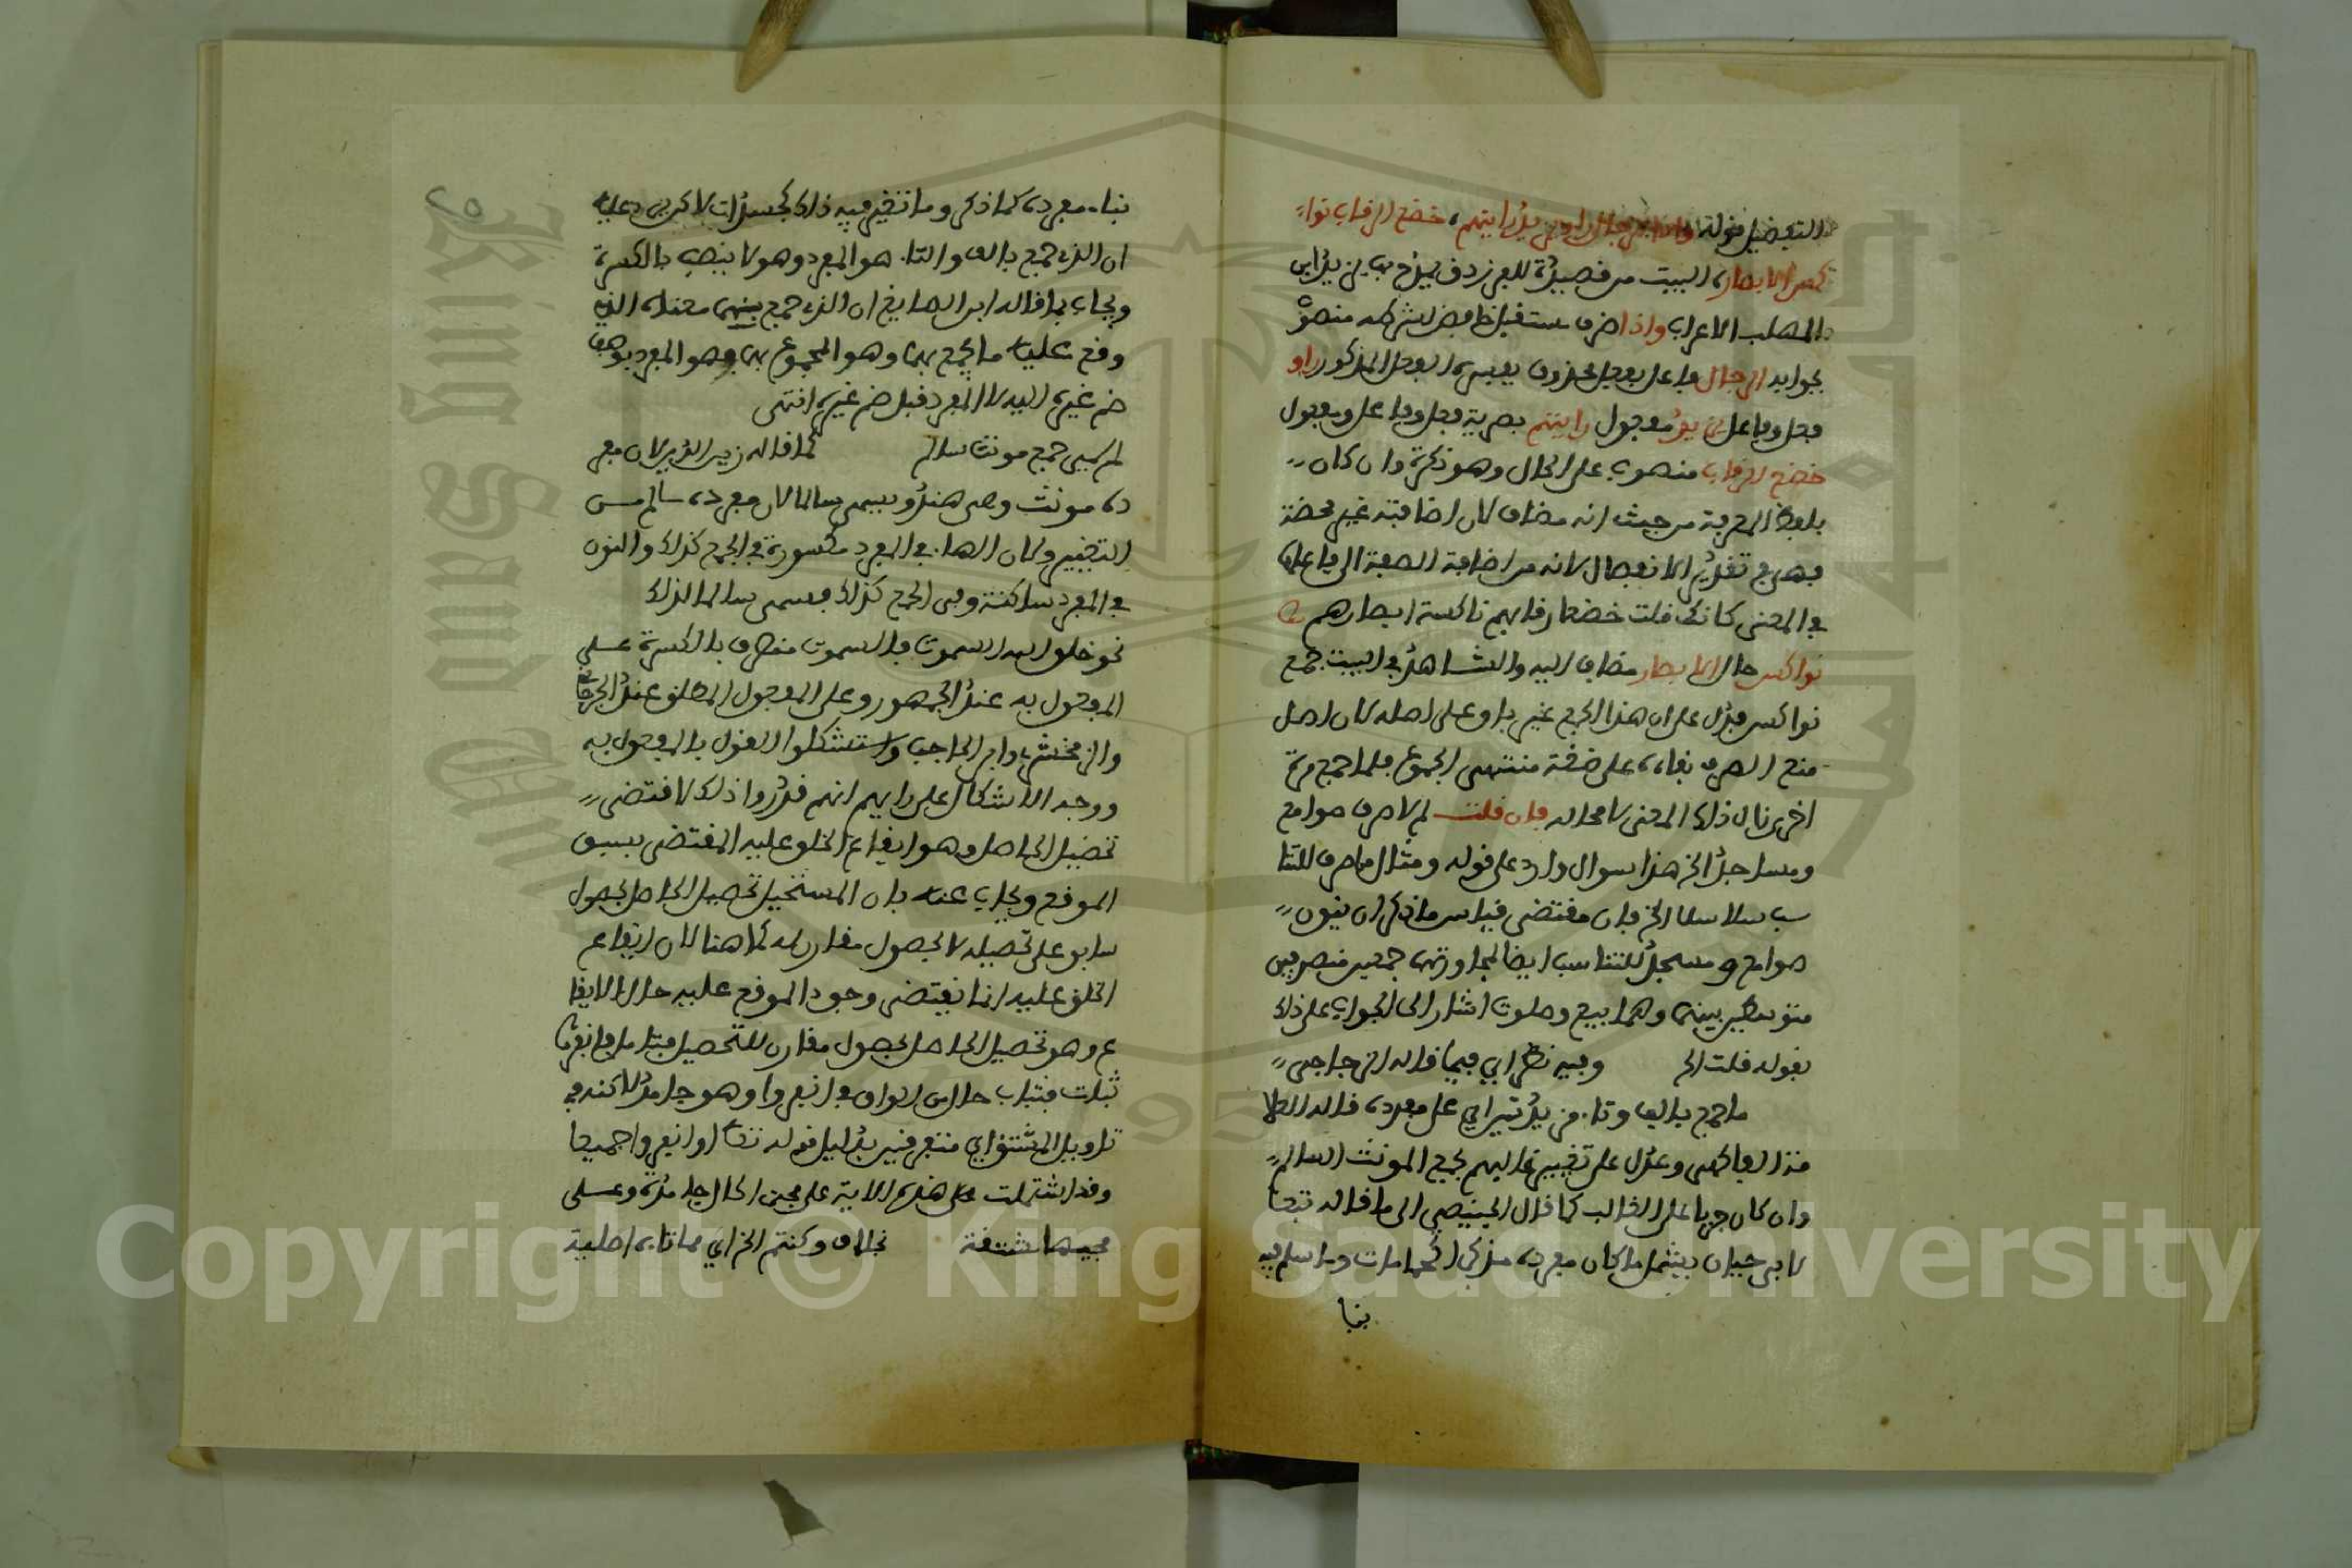 التفضيل قوله واذا الرجال راوا يزيد رايتهم خضع الرقاب نوا
كس الابصار البيت من قصيدة للفرزدق يمدح بها يزيد ابن
المهلب الاعراب واذا ظرف مستقبل خافض لشرطه منصو
بجوابه الرجال فاعل بفعل محذوف يفسره الفعل المذكور راو
فعل وفاعل يزيد مفعول رايتهم بصرية فعل وفاعل ومفعول
خضع الرقاب منصوب على الحال وهو نكرة وان كان
بلفظ المعرفة من حيث انه مضاف لان اضافته غير محضة
فهي في تقدير الانفصال لانه من اضافة الصفة الى فاعلها
في المعنى كانك قلت خضعا رقابهم ناكسة ابصارهم
نواكس حال الابصار مضاف اليه والشاهد في البيت جمع
نواكس فدل على ان هذا الجمع غير باق على اصله لان اصل
منع الصرف بقاءه على صفة منتهى الجموع فلما جمع مرة
اخرى زال ذلك المعنى لا محاله فان قلت لم لا صرف صوامع
ومساجد الخ هذا سوال وارد على قوله ومثال ما صرف للتنا
سب سلاسلا الخ فان مقتضى قياس ما ذكر ان ينون
صوامع ومسجد للتناسب ايضا لمجاورتها جمعين منصرفين
متوسطين بينهما وهما بيع وصلوت اشار الى الجواب على ذلك
بقوله قلت الخ وفيه نظر اي فيما قاله الزجاجي
ما جمع بالف وتا مزيدتين اي على مفرده قاله
الفاكهي وعدل على تعبير غالبهم بجمع المونث السالم
وان كان جريا على الغالب كما قال الى ما قاله تبعا
لابن حيان ليشمل ما كان مفرده مذكرا كحمامات وما سلم فيه
بنا
بنا مفرده كما ذكر وما تغير فيه ذلك
ان الذي جمع بالف والتا هو المفرد وهو لا ينصب بالكسرة
ويجاب بما قاله ابن الصايغ ان الذي جمع بهما معناه الذي
وقع عليه ما يجمع بهما وهو المجموع بهما وهو المفرد
ضم غيره اليه لا المفرد قبل ضم غيره انتهى
لم سمي جمع مونث سالم كما قاله زيد لان مفر
ده مونث وهي هند ويسمى سالما لان مفرده سالم من
التغيير ولان الها في المفرد مكسورة في الجمع كذلك والنون
في المفرد ساكنة وفي الجمع كذلك فسمي سالما لذلك
نحو خلق الله السموت فالسموت منصوب بالكسرة على
المفعول به عند الجمهور وعلى المفعول المطلق عند الجرجاني
والزمخشري وابن الحاجب واستشكلوا القول بالمفعول به
ووجه الاشكال على رايهم انهم قدروا ذلك لاقتضى
تحصيل الحاصل وهو ايقاع الخلق عليه المقتضى بسبق
الموقع ويجاب عنه بان المستحيل تحصيل الحاصل بحصول
سابق على تحصيله لا بحصول مقارن له كما هنا لان ايقاع
الخلق عليه انما يقتضي وجود الموقع عليه حال الايقا
ع وهو تحصيل الحاصل بحصول مقارن للتحصيل فتامل فانفروا
ثبات فثبات حال من الواو في انفروا وهو جامد لكنه في
تاويل المشتق اي متفرقين بدليل قوله تعا او انفروا جميعا
وقد اشتملت هذه الاية على مجي الحال جامدة وعلى
مجيها مشتقة بخلاف وكنتم الخ اي مما تاه اصلية